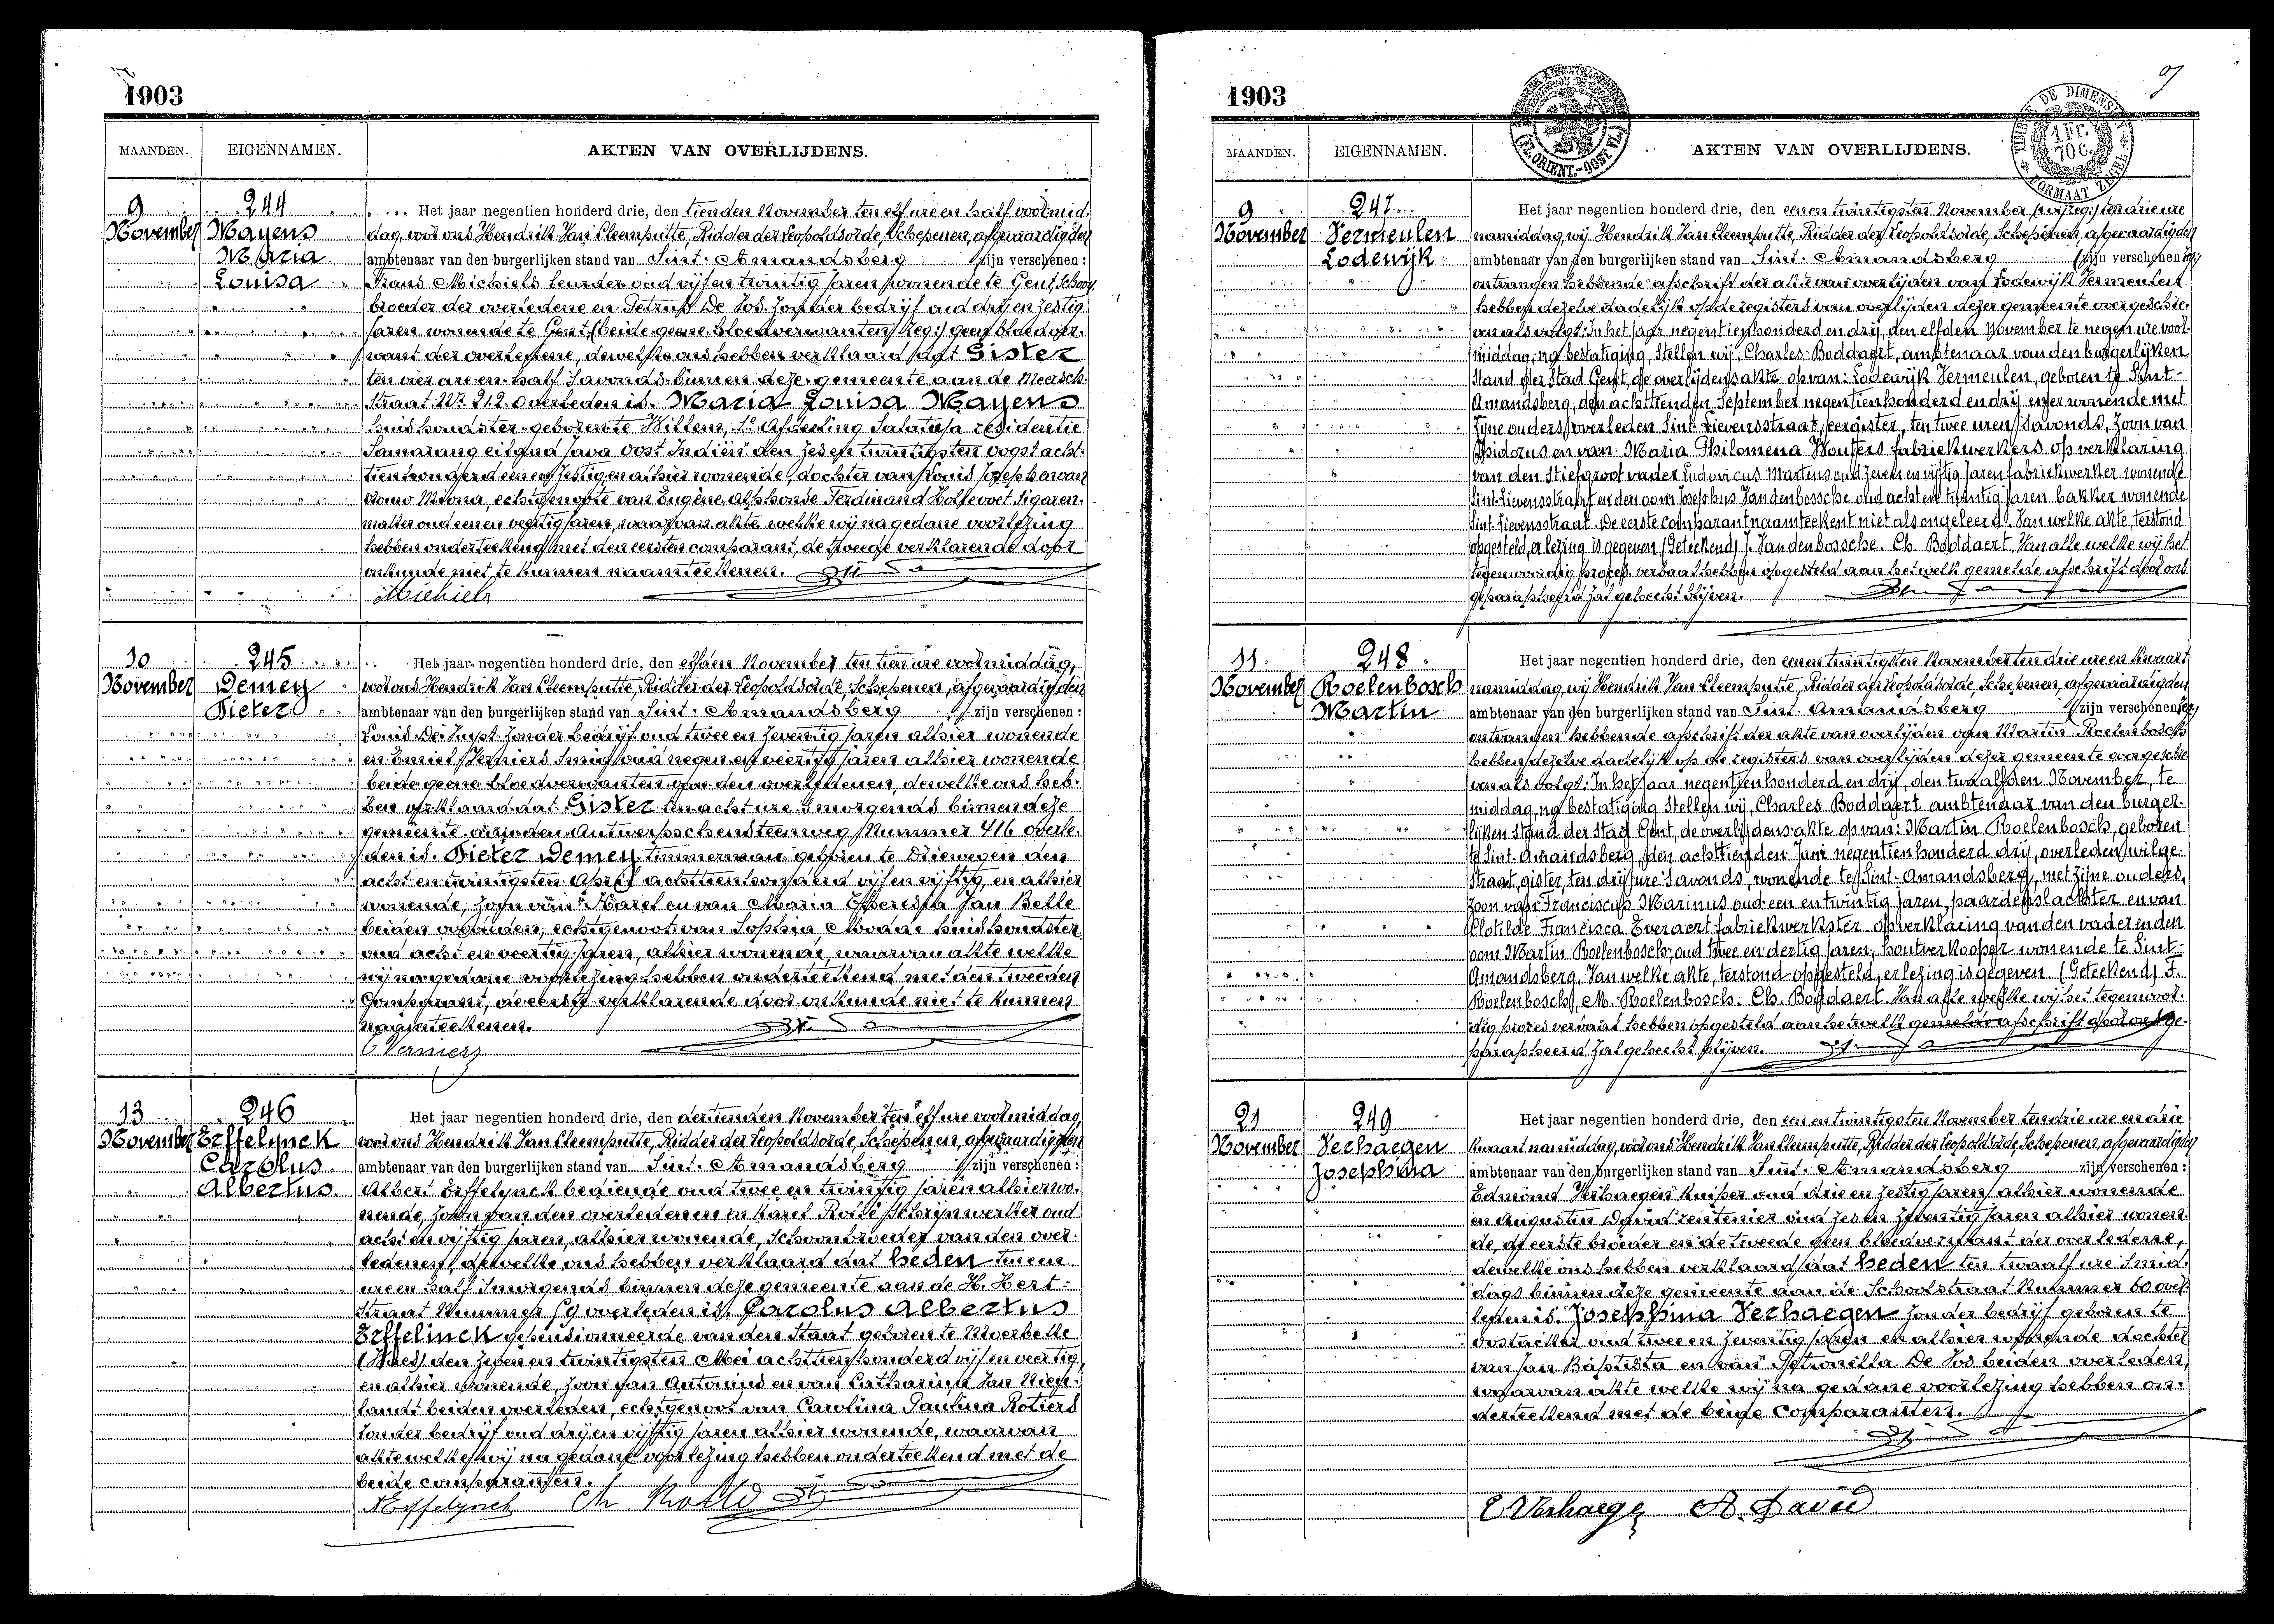 1903
MAANDEN. EIGENNAMEN. AKTEN VAN OVERLIJDENS.
9 November
244
Mayens
Maria
Louisa
Het jaar negentien honderd drie, den tienden November ten elf ure en half voormid-
dag, voor ons Hendrik Van Cleemputte, Ridder der Leopoldsorde, Schepenen, afgevaardigden
ambtenaar van den burgerlijken stand van Sint-Amandsberg zijn verschenen:
Frans Michiels leurder oud vijf en twintig jaren wonende te Gent, schoon-
broeder der overledene en Petrus De Vos zonder bedrijf oud drij en zestig
jaren wonende te Gent (beide geene bloedverwanten/reg:) geen bloedver-
want der overledene, dewelke ons hebben verklaard dat Gister
ten vier ure en half 'savonds binnen deze gemeente aan de Meersch-
straat No. 212 overleden is Maria Louisa Mayens
huishoudster geboren te Willem I afdeeling Salatiga residentie
Samarang eiland Java Oost Indiën den zes en twintigsten oogst acht-
tienhonderd een en zestig en alhier wonende, dochter van Louis Joseph en van
Mina, echtgenoote van Eugène Alphonse Ferdinand Holsevoet Sigaren-
maker oud een en veertig jaren, waarvan akte welke wij na gedane voorlezing
hebben onderteekend met den eersten comparant, de tweede verklarende door
onkunde niet te kunnen naamteekenen.
Michiels
10 November
245
Demey
Pieter
Het jaar negentien honderd drie, den elfden November ten tien ure voormiddag,
voor ons Hendrik Van Cleemputte, Ridder der Leopoldsorde, Schepenen, afgevaardigden
ambtenaar van den burgerlijken stand van Sint-Amandsberg zijn verschenen:
Louis De zonder bedrijf oud twee en zeventig jaren alhier wonende
en Emiel Verniers Smid oud negen en veertig jaren alhier wonende
beide geene bloedverwanten van den overledenen, dewelke ons heb-
ben verklaard dat Gister ten acht ure 'smorgends binnen deze
gemeente aan den Antwerpschensteenweg Nummer 416 overle-
den is Pieter Demey timmerman geboren te Driewegen den
acht en twintigsten April achttienhonderd vijf en vijftig, en alhier
wonende, zoon van Karel en van Maria Theresia Van Belle
beiden overleden, echtgenoot van Sophia huishoudster
oud acht en veertig jaren, alhier wonende, waarvan akte welke
wij na gedane voorlezing hebben onderteekend met den tweeden
Comparant, de eerste verklarende door onkunde niet te kunnen
naamteekenen.
E Verniers
13 November
246
Erffelynck
Carolus
Albertus
Het jaar negentien honderd drie, den dertienden November ten elf ure voormiddag,
voor ons Hendrik Van Cleemputte, Ridder der Leopoldsorde, Schepenen, afgevaardigden
ambtenaar van den burgerlijken stand van Sint-Amandsberg zijn verschenen:
Albert Erffelynck bediende oud twee en twintig jaren alhier wo-
nende, zoon van den overledenen en Karel Rollé schrijnwerker oud
acht en vijftig jaren, alhier wonende, schoonbroeder van den over-
ledenen, dewelke ons hebben verklaard dat heden ten een
ure en half 'smorgends binnen deze gemeente aan de H. Hert-
straat Nummer 59 overleden is Carolus Albertus
Erffelinck gepensionneerde van den Staat geboren te Moerbeke
(Waes) den zeven en twintigsten Mei achttienhonderd vijf en veertig,
en alhier wonende, zoon van Antonius en van Catharina Van Nieu-
landt beiden overleden, echtgenoot van Carolina Paulina Rotiers
zonder bedrijf oud drij en vijftig jaren alhier wonende, waarvan
akte welke wij na gedane voorlezing hebben onderteekend met de
beide comparanten.
A Erffelynck Ch Rollé
1903
BIJZONDER
(FL. ORIENT.-OOST VL.)
TIMBRE DE DIMENSION
1 Fr.
70 C.
FORMAAT ZEGEL
MAANDEN. EIGENNAMEN. AKTEN VAN OVERLIJDENS.
9 November
247
Vermeulen
Lodewijk
Het jaar negentien honderd drie, den eenen twintigsten November (wij reg:) ten drie ure
namiddag, wij Hendrik Van Cleemputte, Ridder der Leopoldsorde, Schepenen, afgevaardigden
ambtenaar van den burgerlijken stand van Sint-Amandsberg (zijn verschenen: reg)
ontvangen hebbende afschrift der akte van overlijden van Lodewijk Vermeulen
hebben dezelve dadelijk op de registers van overlijden dezer gemeente overgeschre-
ven als volgt: In het jaar negentienhonderd en drij, den elfden November te negen ure voor-
middag, na bestatiging, Stellen wij, Charles Boddaert, ambtenaar van den burgerlijken
Stand der Stad Gent, de overlijdensakte op van: Lodewijk Vermeulen, geboren te Sint-
Amandsberg, den achttienden September negentienhonderd en drij en er wonende met
zijne ouders, overleden Sint-Lievensstraat, eergister, ten twee uren 'savonds, Zoon van
Isidorus en van Maria Philomena Wouters fabriekwerkers op verklaring
van den Stiefgrootvader Ludovicus Martens oud zeven en vijftig jaren fabriekwerker wonende
Sint-Lievensstraat en den oom Josephus Vandenbossche oud acht en twintig jaren bakker wonende
Sint-Lievensstraat. De eerste comparant naamteekent niet als ongeleerd. Van welke akte, terstond
opgesteld, er lezing is gegeven. (Geteekend) J. Vandenbossche. Ch. Boddaert. Van alle welke wij het
tegenwoordig proces-verbaal hebben opgesteld aan hetwelk gemelde afschrift door ons
geparapheerd zal gehecht blijven.
11 November
248
Roelenbosch
Martin
Het jaar negentien honderd drie, den eenen twintigsten November ten drie ure en kwaart
namiddag, wij Hendrik Van Cleemputte, Ridder der Leopoldsorde, Schepenen, afgevaardigden
ambtenaar van den burgerlijken stand van Sint-Amandsberg (zijn verschenen: reg)
ontvangen hebbende afschrift der akte van overlijden van Martin Roelenbosch
hebben dezelve dadelijk op de registers van overlijden dezer gemeente overgeschre-
ven als volgt: In het jaar negentienhonderd en drij, den twaalfden November, te
middag, na bestatiging Stellen wij, Charles Boddaert ambtenaar van den burger-
lijken Stand der Stad Gent, de overlijdensakte op van: Martin Roelenbosch, geboren
te Sint-Amandsberg, den achttienden Juni negentienhonderd drij, overleden wilge-
straat gister, ten drij ure 'savonds, wonende te Sint-Amandsberg, met zijne ouders,
zoon van Franciscus Marinus oud een en twintig jaren, paardenslachter en van
Clotilde Francisca Everaert fabriekwerkster, op verklaring van den vader en den
oom Martin Roelenbosch oud twee en dertig jaren, houtverkooper wonende te Sint-
Amandsberg. Van welke akte, terstond opgesteld, er lezing is gegeven. (Geteekend) F.
Roelenbosch, M. Roelenbosch. Ch. Boddaert. Van alle welke wij het tegenwoor-
dig proces verbaal hebben opgesteld aan hetwelk gemelde afschrift door ons ge-
parapheerd zal gehecht blijven.
21 November
249
Verhaegen
Josephina
Het jaar negentien honderd drie, den een en twintigsten November ten drie ure en drie
kwaart namiddag, voor ons Hendrik Van Cleemputte, Ridder der Leopoldsorde, Schepenen, afgevaardigden
ambtenaar van den burgerlijken stand van Sint-Amandsberg zijn verschenen:
Edmond Verhaegen kuiper oud drie en zestig jaren alhier wonende
en Augustin David rentenier oud zes en zeventig jaren alhier wonen-
de, de eerste broeder en de tweede geen bloedverwant der overledene,
dewelke ons hebben verklaard dat heden ten twaalf ure 'smid-
dags binnen deze gemeente aan de Schoolstraat Nummer 60 over-
leden is Josephina Verhaegen zonder bedrijf geboren te
Oostacker oud twee en zeventig jaren en alhier wonende dochter
van Jan Baptista en van Petronella De Vos beiden overleden,
waarvan akte welke wij na gedane voorlezing hebben on-
derteekend met de beide comparanten.
E Verhaegen A. David